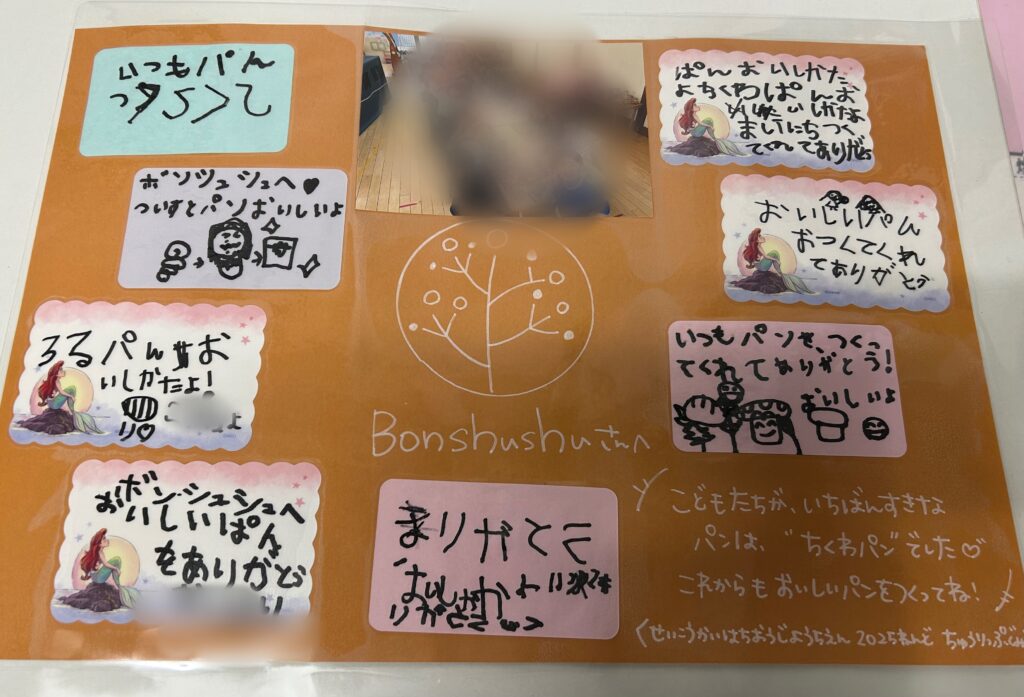 いつもパん
ボンシュシュへ♥
パンおいしいよ
ろるパん
お
いしかたよ!
り♡
ボンシュシュへ
おいしいぱん
をありがとう
ぱんおいしかた
よちくわぱんお
いしかたよ
まいにちつく
てくれてありがとう
おいしいパん
おつくてくれ
てありがとう
いつもパンを、つくっ
てくれてありがとう!
おいしいよ
Bonshushuさんへ
こどもたちが、いちばんすきな
パンは、"ちくわパン"でした♡
これからもおいしいパンをつくってね!
せいこうかいはちおうじようちえん 2025ねんど ちゅうりっぷ